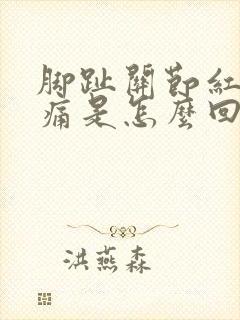 脚趾關節紅
痛是怎麼回
洪燕森